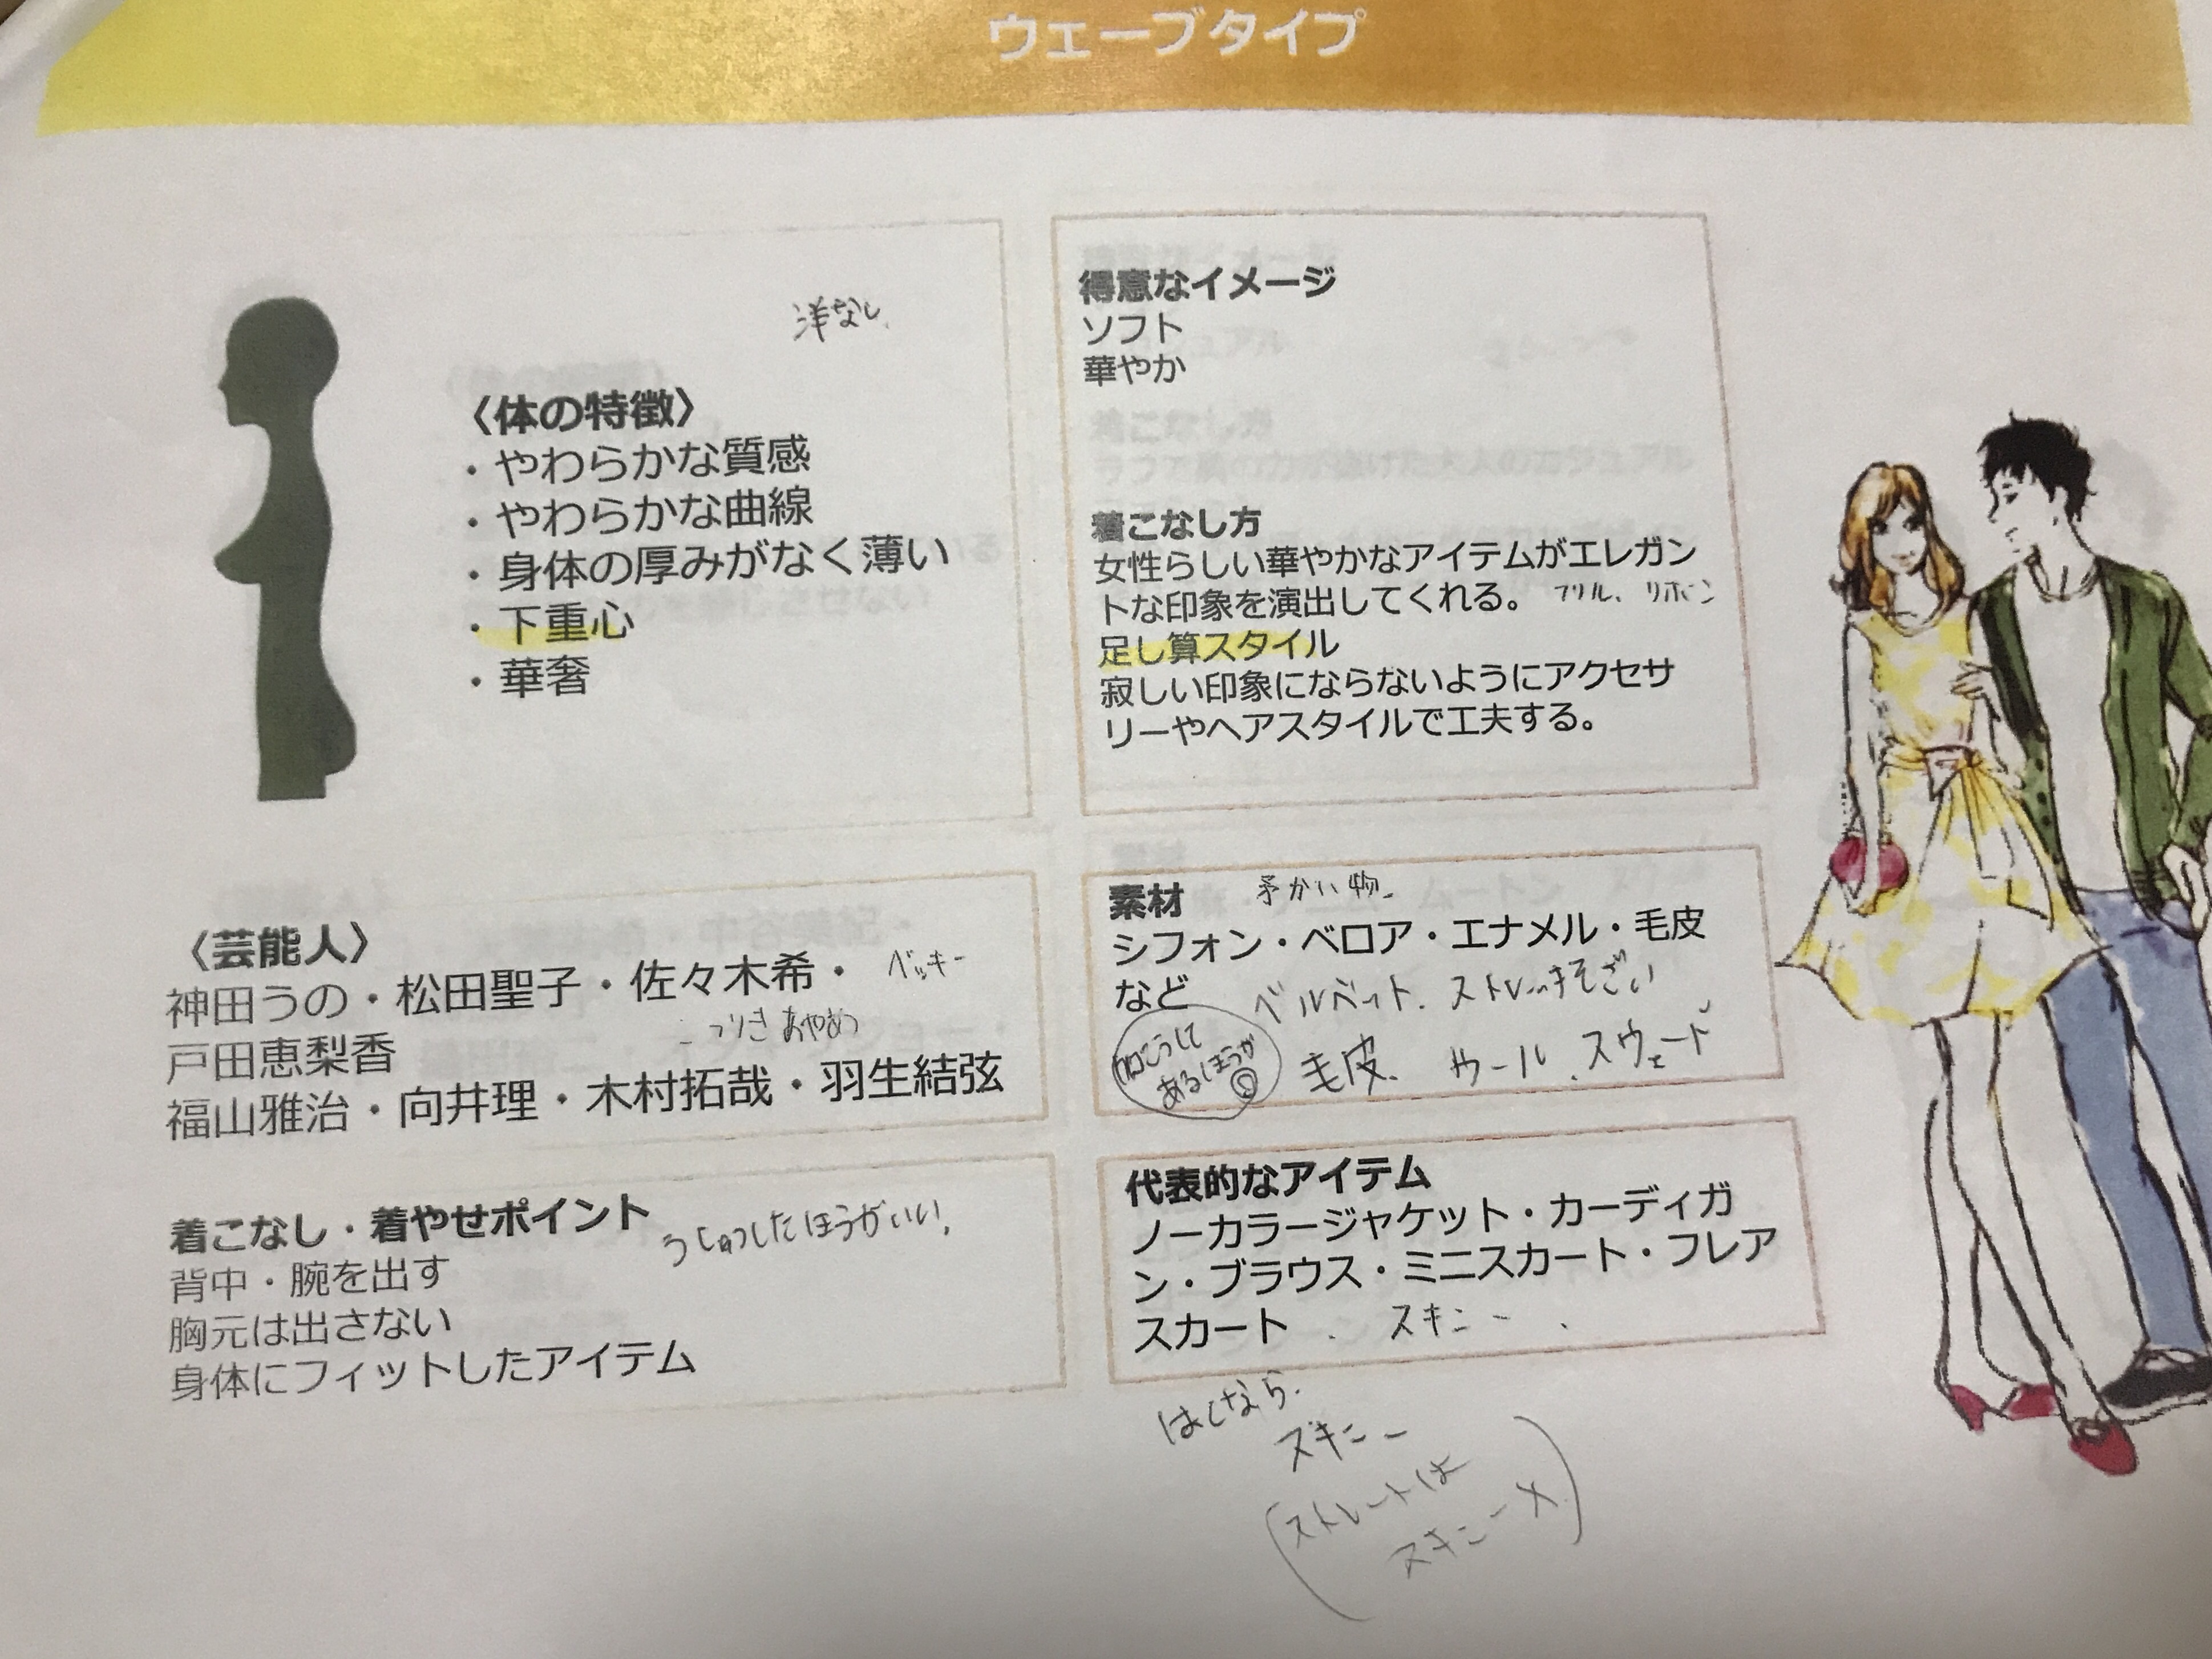 ウェーブタイプ
洋なし
〈体の特徴〉
・やわらかな質感
・やわらかな曲線
・身体の厚みがなく薄い
・下重心
・華奢
得意なイメージ
ソフト
華やか
着こなし方
女性らしい華やかなアイテムがエレガン
トな印象を演出してくれる。 フリル、リボン
足し算スタイル
寂しい印象にならないようにアクセサ
リーやヘアスタイルで工夫する。
〈芸能人〉
神田うの・松田聖子・佐々木希・ ベッキー
戸田恵梨香 ごうりきあやめ
福山雅治・向井理・木村拓哉・羽生結弦
素材 柔かい物
シフォン・ベロア・エナメル・毛皮
など ベルベット、ストレッチそざい
毛皮、ウール、スウェード
かこうして
あるほうが
◎
着こなし・着やせポイント
したほうがいい
背中・腕を出す
胸元は出さない
身体にフィットしたアイテム
代表的なアイテム
ノーカラージャケット・カーディガ
ン・ブラウス・ミニスカート・フレア
スカート . スキニー .
はくなら.
スキニー
(ストレートは
スキニー×)